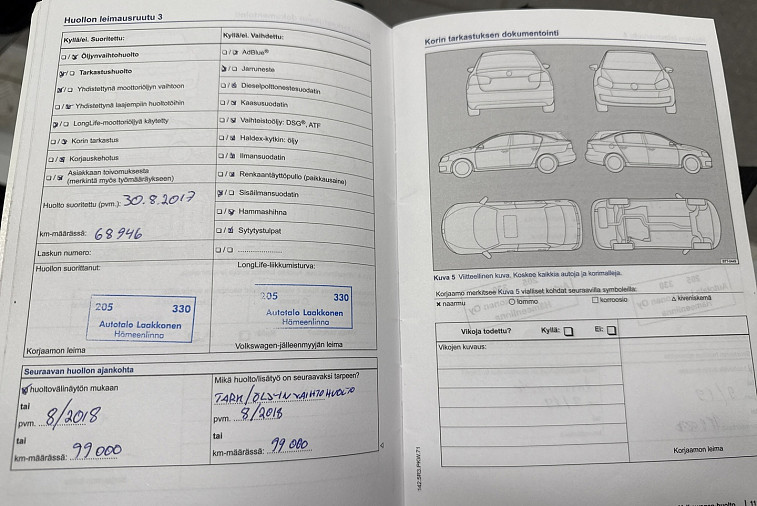 Huollon leimausruutu 3
Kyllä/ei. Suoritettu:
Öljynvaihtohuolto
Tarkastushuolto
Yhdistettynä moottoriöljyn vaihtoon
Yhdistettynä laajempiin huoltotöihin
LongLife-moottoriöljyä käytetty
Korin tarkastus
Korjauskehotus
Asiakkaan toivomuksesta
(merkintä myös työmääräykseen)
Huolto suoritettu (pvm.): 30.8.2017
km-määrässä: 68946
Laskun numero:
Huollon suorittanut:
205 330
Autotalo Laakkonen
Hämeenlinna
Korjaamon leima
Kyllä/ei. Vaihdettu:
AdBlue®
Jarruneste
Dieselpolttonestesuodatin
Kaasusuodatin
Vaihteistoöljy: DSG®, ATF
Haldex-kytkin: öljy
Ilmansuodatin
Renkaantäyttöpullo (paikkausaine)
Sisäilmansuodatin
Hammashihna
Sytytystulpat
LongLife-liikkumisturva:
205 330
Autotalo Laakkonen
Hämeenlinna
Volkswagen-jälleenmyyjän leima
Seuraavan huollon ajankohta
huoltovälinäytön mukaan
tai
pvm. 8/2018
tai
km-määrässä: 99000
Mikä huolto/lisätyö on seuraavaksi tarpeen?
TARK/ÖLJYNVAIHTOHUOLTO
pvm. 8/2018
tai
km-määrässä: 99000
Korin tarkastuksen dokumentointi
Kuva 5 Viitteellinen kuva. Koskee kaikkia autoja ja korimalleja.
Korjaamo merkitsee Kuva 5 vialliset kohdat seuraavilla symboleilla:
× naarmu ○ lommo □ korroosio △ kiveniskemä
Vikoja todettu? Kyllä: Ei:
Vikojen kuvaus:
Korjaamon leima
142.5R3.PKW.71
11